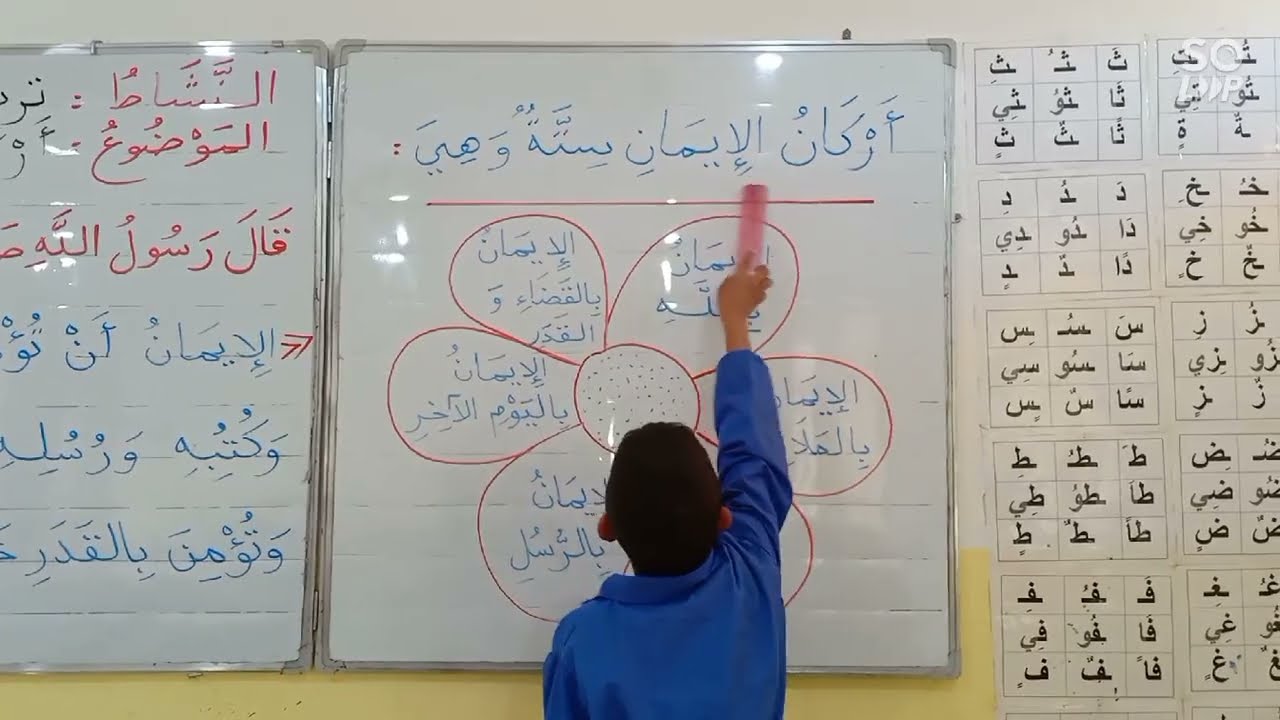 النَّشَاطُ :
المَوْضُوعُ :
قَالَ رَسُولُ اللَّهِ
الإِيمَانُ أَنْ
وَكُتُبِهِ وَرُسُلِهِ
وَتُؤْمِنَ بِالقَدَرِ
أَرْكَانُ الإِيمَانِ سِتَّةٌ وَهِيَ :
الإِيمَانُ
بِاللَّهِ
الإِيمَانُ
بِالقَضَاءِ وَ
القَدَرِ
الإِيمَانُ
بِاليَوْمِ الآخِرِ
الإِيمَانُ
بِالرُّسُلِ
ثَ ثُ ثِ
ثَا ثُو ثِي
ثًا ثٌ ثٍ
دَ دُ دِ
دَا دُو دِي
دًا دٌ دٍ
خُ خِ
خُو خِي
خٌ خٍ
سَ سُ سِ
سَا سُو سِي
سًا سٌ سٍ
زُ زِ
زُو زِي
زٌ زٍ
طَ طُ طِ
طَا طُو طِي
طًا طٌ طٍ
ضُ ضِ
ضُو ضِي
ضٌ ضٍ
فَ فُ فِ
فَا فُو فِي
فًا فٌ فٍ
غُ غِ
غُو غِي
غٌ غٍ